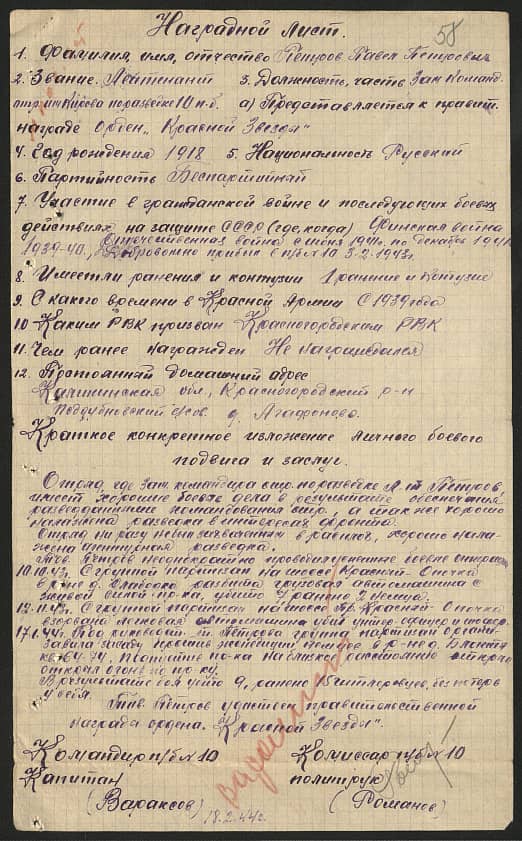 Наградной лист.
58
1. Фамилия, имя, отчество Петров Павел Петрович
2. Звание. Лейтенант 3. Должность, часть Зам. Команд.
отр. им. Кирова по разведке 10 п.б. а) Представляется к правит.
награде Орден „Красной Звезды"
4. Год рождения 1918 5. Национальность Русский
6. Партийность Беспартийный
7. Участие в гражданской войне и последующих боевых
действиях на защите СССР (где, когда) Финская война
1939-40, Отечественная война с июня 1941г. по декабрь 1941г.
Добровольно прибыл в п/бр 10 3.2.1943г.
8. Имеет ли ранения и контузии 1 ранение и контузию
9. С какого времени в Красной Армии С 1939 года
10 Каким РВК призван Красногородским РВК
11. Чем ранее награжден Не награждался
12. Постоянный домашний адрес
Калининская обл., Красногородский р-н
Поддубновский с/сов. д. Агафоново.
Краткое конкретное изложение личного боевого
подвига и заслуг.
Отряд, где зам. командира отр. по разведке л-т Петров,
имеет хорошие боевые дела в результате обеспечения
разведданными командования отр., а так же хорошо
налажена разведка в интересах фронта.
Отряд ни разу не был захвачен в расплох, хорошо нала-
жена агентурная разведка.
Тов. Петров неоднократно проводил успешные боевые операции
10.10.43г. С группой партизан на шоссе Красный - Опочка
в р-не д. разбита грузовая автомашина с
живой силой пр-ка, убито 7 ранено 2 немца.
12.11.43г. С группой партизан на шоссе Гр. Красный - Опочка
взорвана легковая автомашина убит унтер-офицер и шофер.
17.1.44г. Под руководст. т. Петрова группа партизан органи-
зовала засаду против экспедиции немцев в р-не д.
Подпустив пр-ка на близкое расстояние отряд
открыл огонь по пр-ку.
В результате боя убито 9, ранено гитлеровцев, без потерь
у себя.
Тов. Петров удостоен правительственной
награда ордена „Красной Звезды".
Командир п/б № 10 Комиссар п/б № 10
Капитан политрук
(Вараксов) (Романов)
18.2.44г.